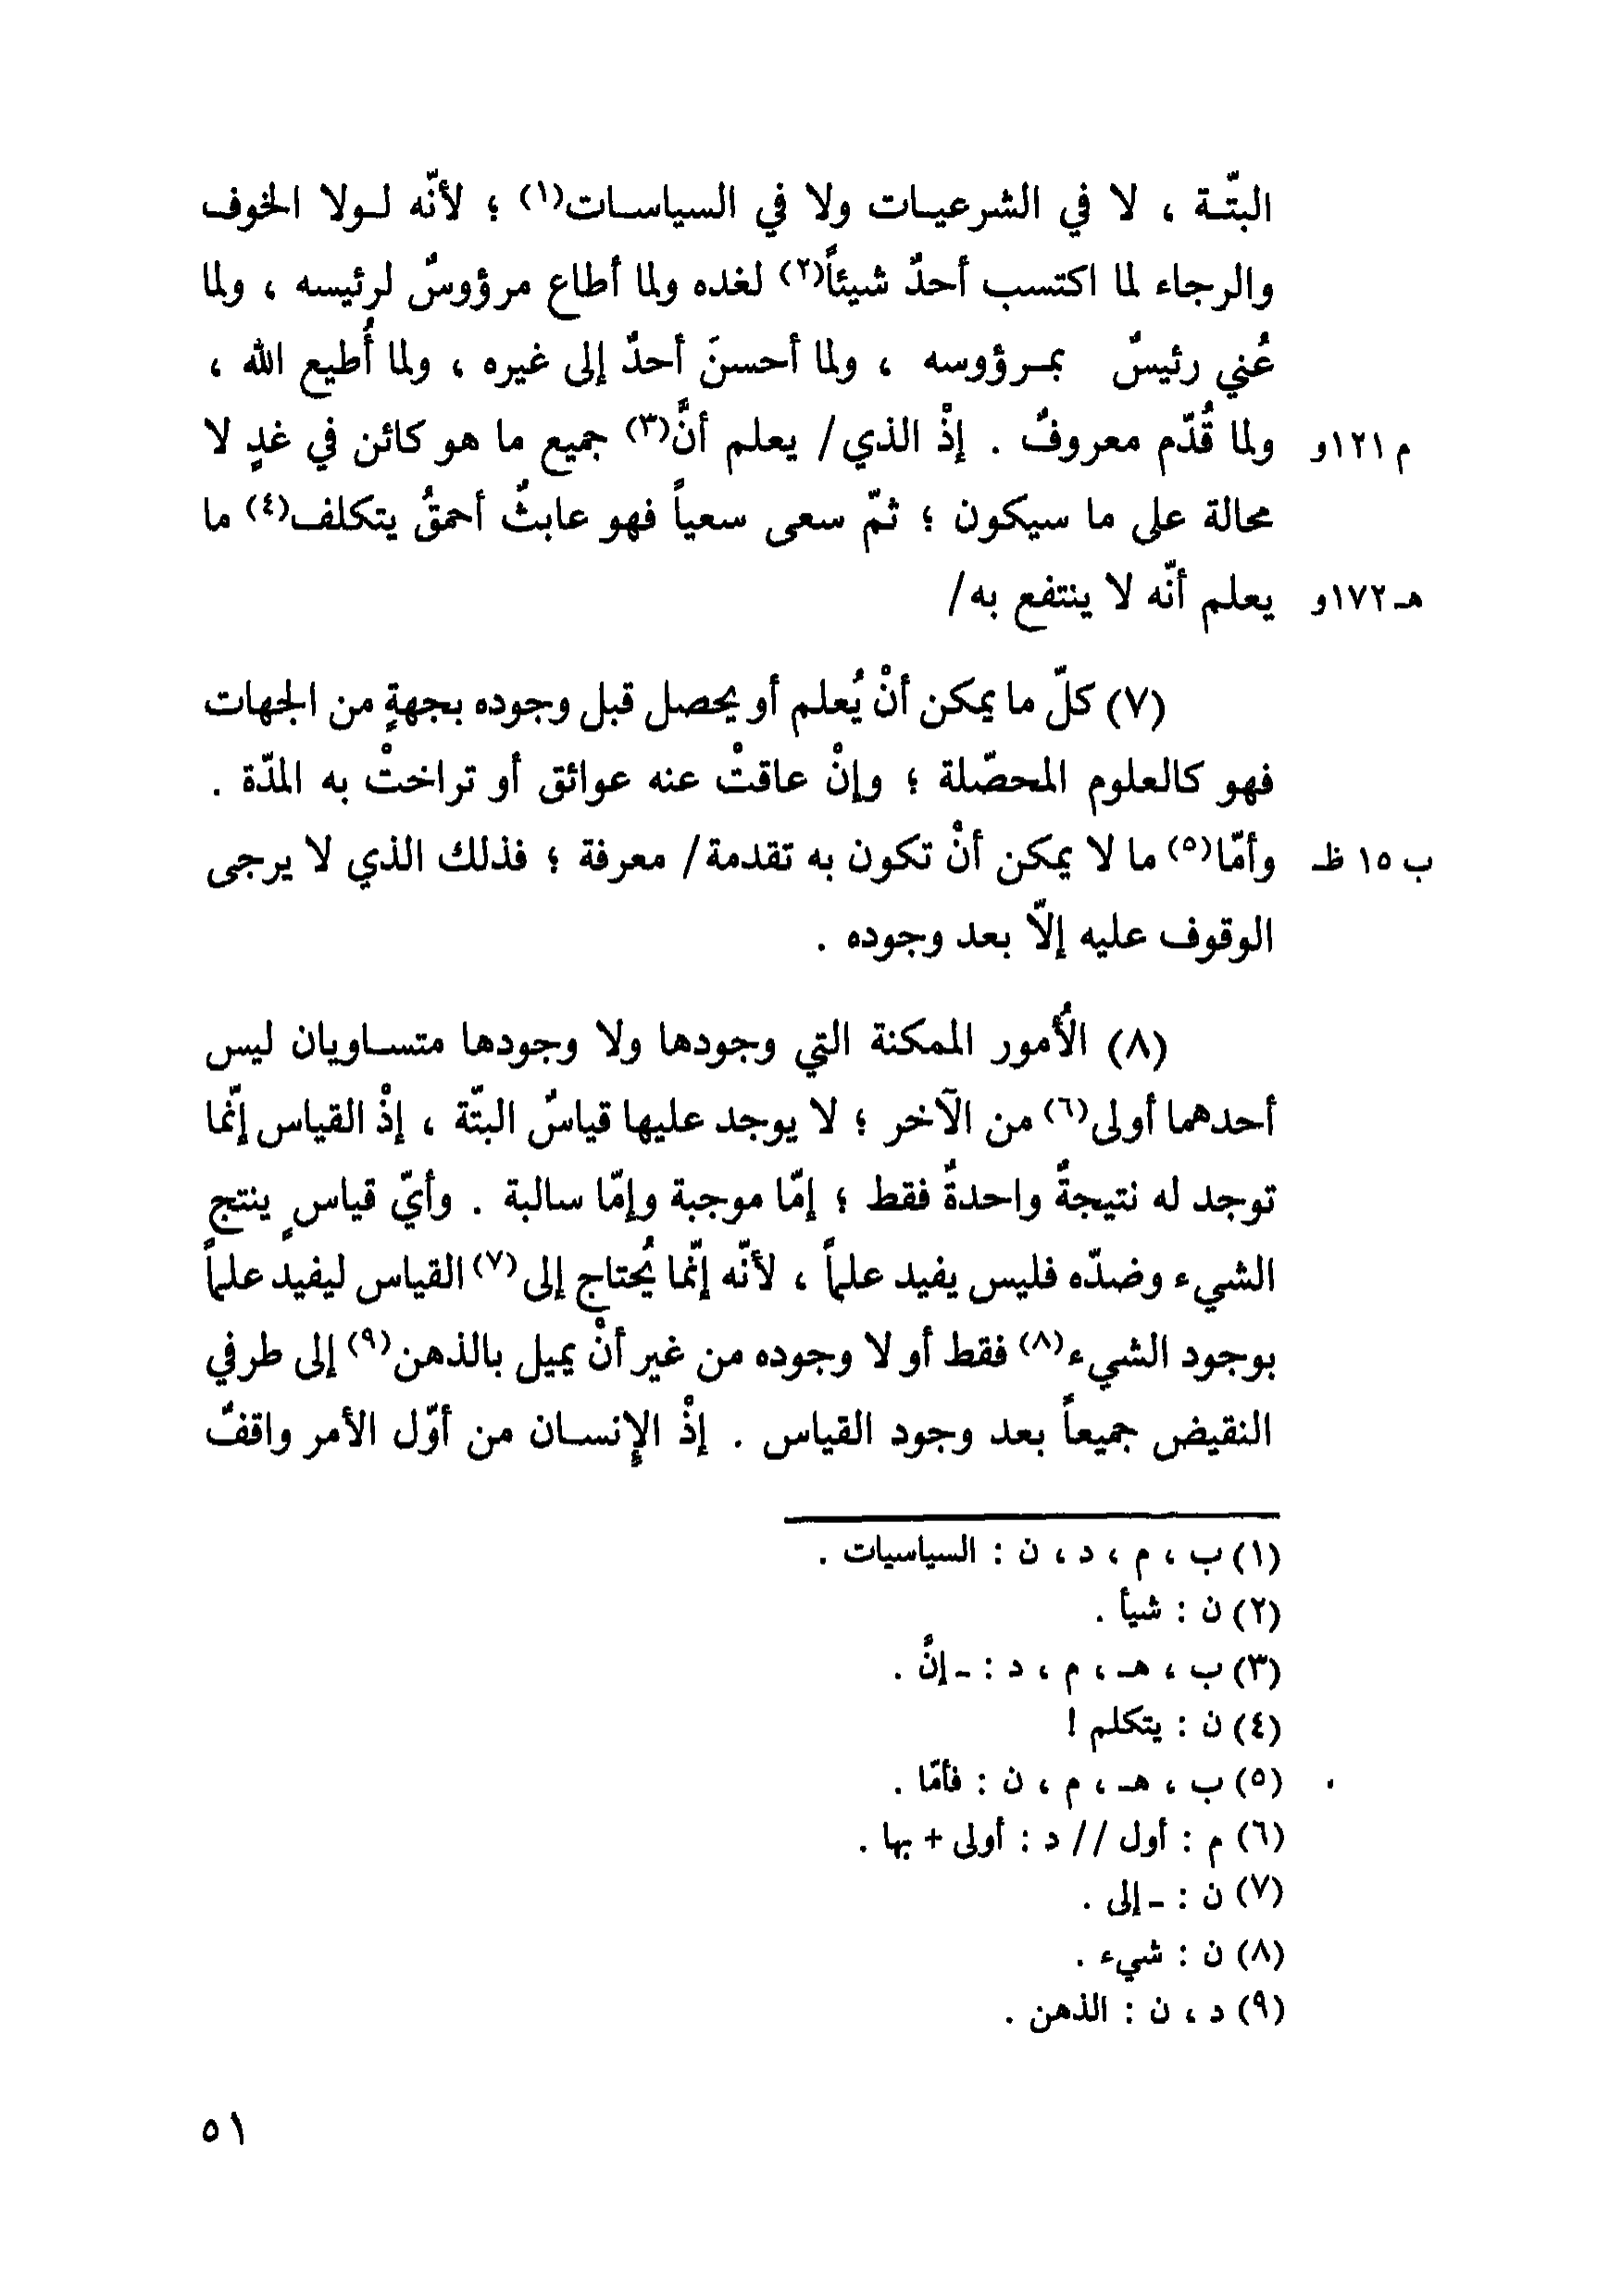 البتّـة ، لا في الشرعيـات ولا في السياسـات(١) ؛ لأنّه لـولا الخوف
والرجاء لما اكتسب أحدٌ شيئاً(٢) لغده ولما أطاع مرؤوسٌ لرئيسه ، ولما
عُني رئيسٌ بمـرؤوسه ، ولما أحسنَ أحدٌ إلى غيره ، ولما أُطيع الله ،
م ١٢١و ولما قُدّم معروفٌ . إذْ الذي/ يعلم أنَّ(٣) جميع ما هو كائن في غدٍ لا
محالة على ما سيكون ؛ ثمّ سعى سعياً فهو عابثٌ أحمقُ يتكلف(٤) ما
هـ ١٧٢و يعلم أنّه لا ينتفع به/
(٧) كلّ ما يمكن أنْ يُعلم أو يحصل قبل وجوده بجهةٍ من الجهات
فهو كالعلوم المحصّلة ؛ وإنْ عاقتْ عنه عوائق أو تراختْ به المدّة .
ب ١٥ ظ وأمّا(٥) ما لا يمكن أنْ تكون به تقدمة/ معرفة ؛ فذلك الذي لا يرجى
الوقوف عليه إلاّ بعد وجوده .
(٨) الأُمور الممكنة التي وجودها ولا وجودها متسـاويان ليس
أحدهما أولى(٦) من الآخر ؛ لا يوجد عليها قياسٌ البتّة ، إذْ القياس إنّما
توجد له نتيجةٌ واحدةٌ فقط ؛ إمّا موجبة وإمّا سالبة . وأيّ قياسٍ ينتج
الشيء وضدّه فليس يفيد علماً ، لأنّه إنّما يُحتاج إلى(٧) القياس ليفيد علماً
بوجود الشيء(٨) فقط أو لا وجوده من غير أنْ يميل بالذهن(٩) إلى طرفي
النقيض جميعاً بعد وجود القياس . إذْ الإنسـان من أوّل الأمر واقفٌ
(١) ب ، م ، د ، ن : السياسيات .
(٢) ن : شيأ .
(٣) ب ، هـ ، م ، د : ـ إنَّ .
(٤) ن : يتكلم !
(٥) ب ، هـ ، م ، ن : فأمّا .
(٦) م : أول // د : أولى + بها .
(٧) ن : ـ إلى .
(٨) ن : شيء .
(٩) د ، ن : الذهن .
٥١